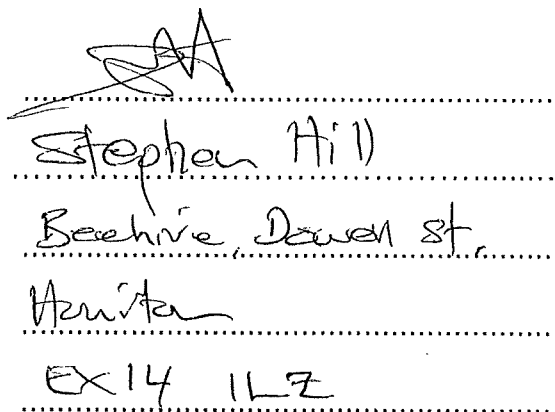 Stephen Hill
Beehive, Dowell St.
Honiton
EX14 1LZ